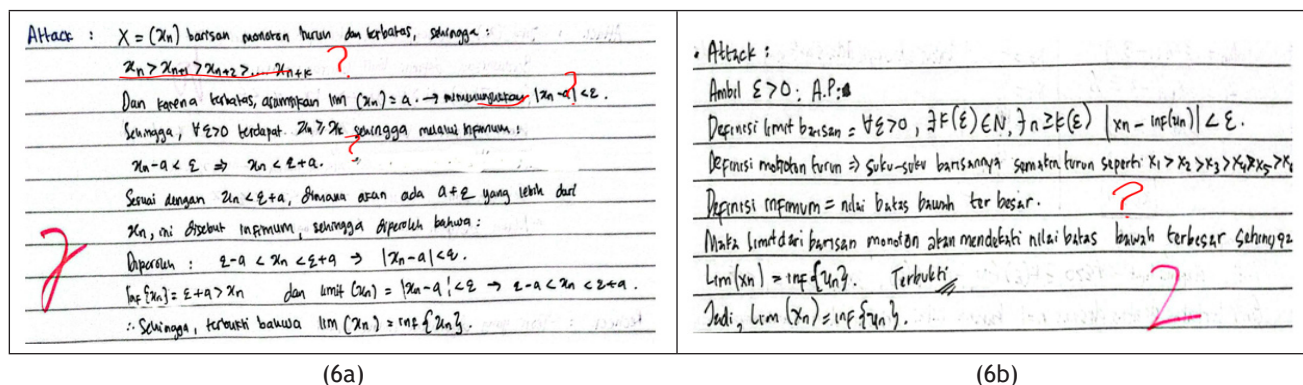 Attack : X = (xn) barisan monoton turun dan terbatas, sehingga :
xn > xn+1 > xn+2 > .... xn+k ?
Dan karena terbatas, asumsikan lim (xn) = a. → |xn - a| < ε. ?
Sehingga, ∀ε>0 terdapat xn ≥ xk sehingga melalui infimum :
xn - a < ε ⇒ xn < ε + a. ?
Sesuai dengan xn < ε+a, dimana akan ada a+ε yang lebih dari
xn, ini disebut infimum, sehingga diperoleh bahwa :
Diperoleh : ε-a < xn < ε+a ⇒ |xn-a| < ε.
Inf {xn} = ε+a > xn dan limit (xn) = |xn-a| < ε → ε-a < xn < ε+a.
∴ Sehingga, terbukti bahwa lim (xn) = inf {xn}.
2
(6a)
• Attack :
Ambil ε>0 ; A.P:
Definisi limit barisan = ∀ε>0, ∃K(ε)∈N, ∃n≥K(ε) |xn - inf(xn)| < ε.
Definisi monoton turun ⇒ suku-suku barisannya semakin turun seperti x1 > x2 > x3 > x4 > x5 > x6
Definisi infimum = nilai batas bawah terbesar. ?
Maka limit dari barisan monoton akan mendekati nilai batas bawah terbesar sehingga
Lim(xn) = inf{xn}. Terbukti
Jadi, Lim (xn) = inf {xn}.
2
(6b)